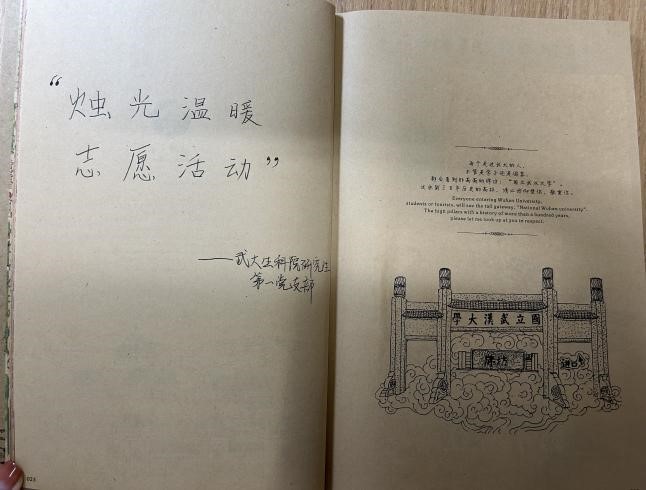 “烛光温暖
志愿活动”
——武大生科院研究生
第一党支部
023
每个走进武大的人，
都会看到那高高的牌坊：“国立武汉大学”。
Everyone entering Wuhan University,
students or tourists, will see the tall gateway, "National Wuhan university".
The high pillars with a history of more than a hundred years,
please let me look up at you in respect.
學大漢武立國